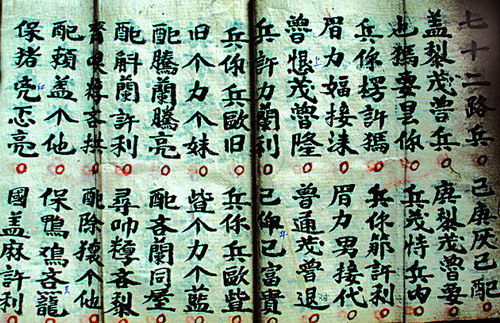 七十二路兵 己庚灰己配
盖梨茂曾兵 庚梨茂曾要
也獁要里你 兵茂恃兵内
兵你楞許獁 兵你許利
眉力媔接 眉力男接代
曾恨茂曾隆 曾通茂曾退
兵許力蘭利 已仰已富貴
兵你兵歐旧 兵你兵歐些
旧个力个妹 些个力个藍
配騰蘭騰亮 配吝蘭同屋
配斛蘭許利 尋吝梨
吝拱 配除獽个他
配頼盖个他 保鴨吝龍
保猪亮忑亮 國盖麻許利